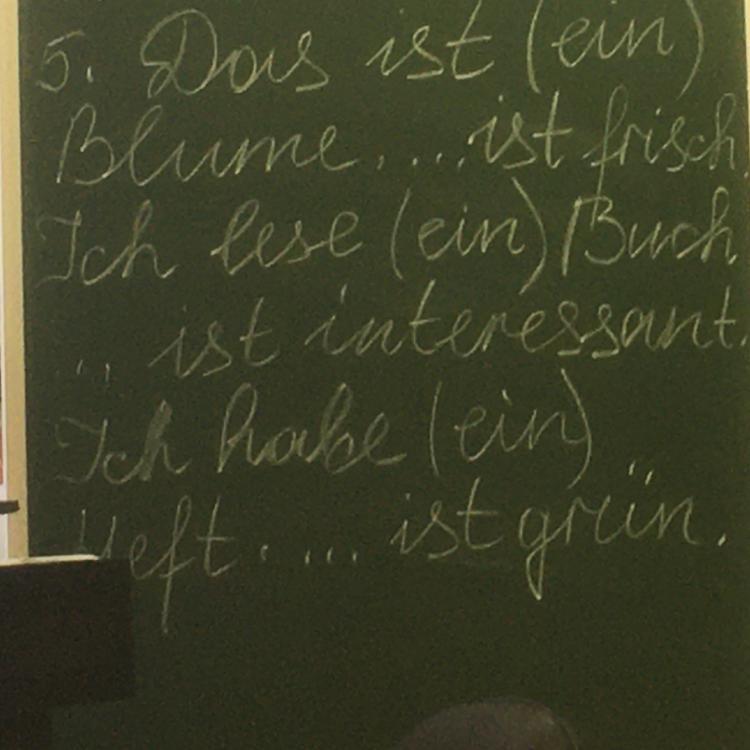 5. Das ist (ein)
Blume. ... ist frisch.
Ich lese (ein) Buch
... ist interessant.
Ich habe (ein)
Heft. ... ist grün.